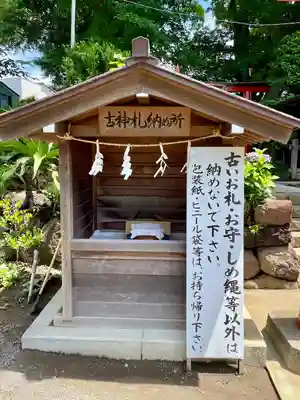 古神札納め所
古いお札・お守・しめ縄等以外は
納めないで下さい。
包装紙・ビニール袋等は、お持ち帰り下さい。